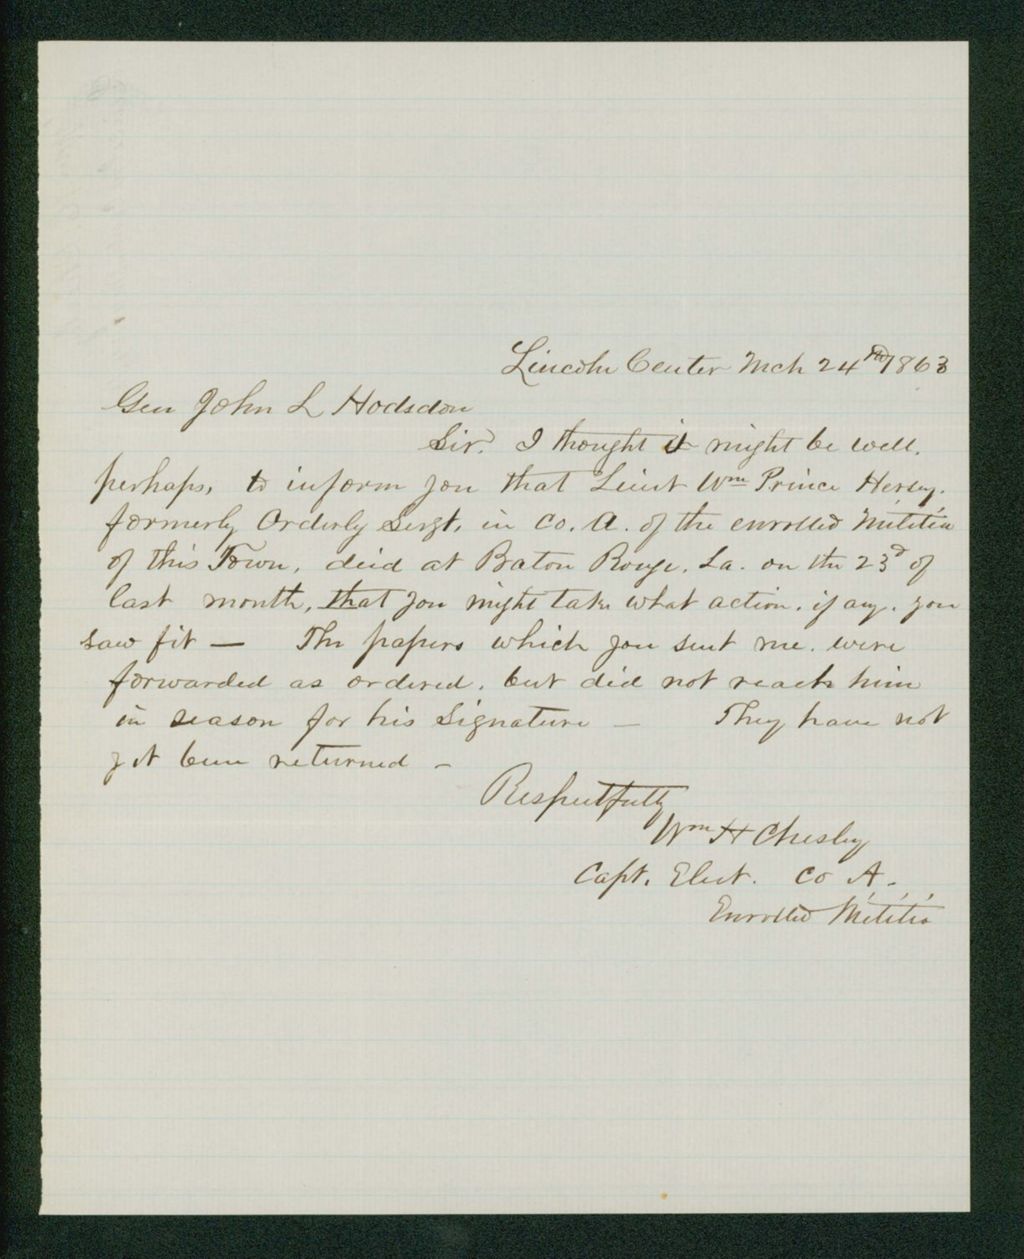 Lincoln Center Mch 24th 1863
Gen John L Hodsdon
Sir. I thought it might be well,
perhaps, to inform you that Lieut Wm Prince Hersey,
formerly Orderly Sergt, in Co. A. of the enrolled Militia
of this Town, died at Baton Rouge, La. on the 23d of
last month, that you might take what action, if any, you
saw fit — The papers which you sent me, were
forwarded as ordered, but did not reach him
in season for his Signature — They have not
yet been returned –
Respectfully
Wm H Chesley
Capt. Elect. Co A.
Enrolled Militia